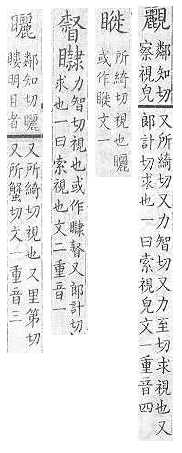 䚕
鄰知切
察視皃
又所綺切又力智切又力至切求視也又
郎計切求也一曰索視皃文一重音四
所綺切視也矖
或作文一
力智切視也或作又郎計切
求也一曰索視也文二重音一
矖
鄰知切矖
瞜明目者
又所綺切視也又里第切
又所蟹切文一重音三